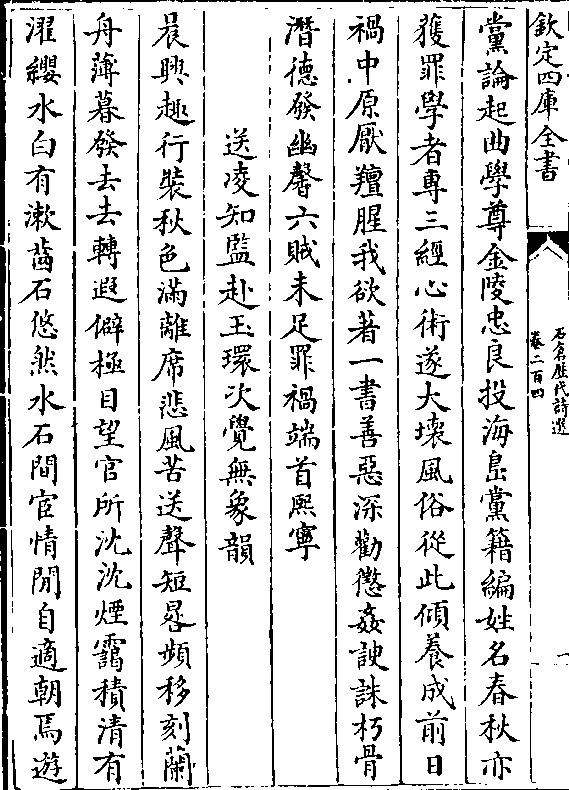 欽定四庫全書
石倉歷代詩選
卷二百四
黨論起曲學尊金陵忠良投海島黨籍編姓名春秋亦
獲罪學者專三經心術遂大壊風俗從此傾養成前日
禍中原厭羶腥我欲著一書善惡深勸懲姦諛誅朽骨
潛德發幽馨六賊未足罪禍端首熙寧
送凌知監赴玉環次覺無象韻
晨興趣行裝秋色滿離席悲風苦送聲短晷頻移刻蘭
舟薄暮發去去轉遐僻極目望官所沈沈煙靄積清有
濯纓水白有漱齒石悠然水石間宦情閒自適朝焉遊